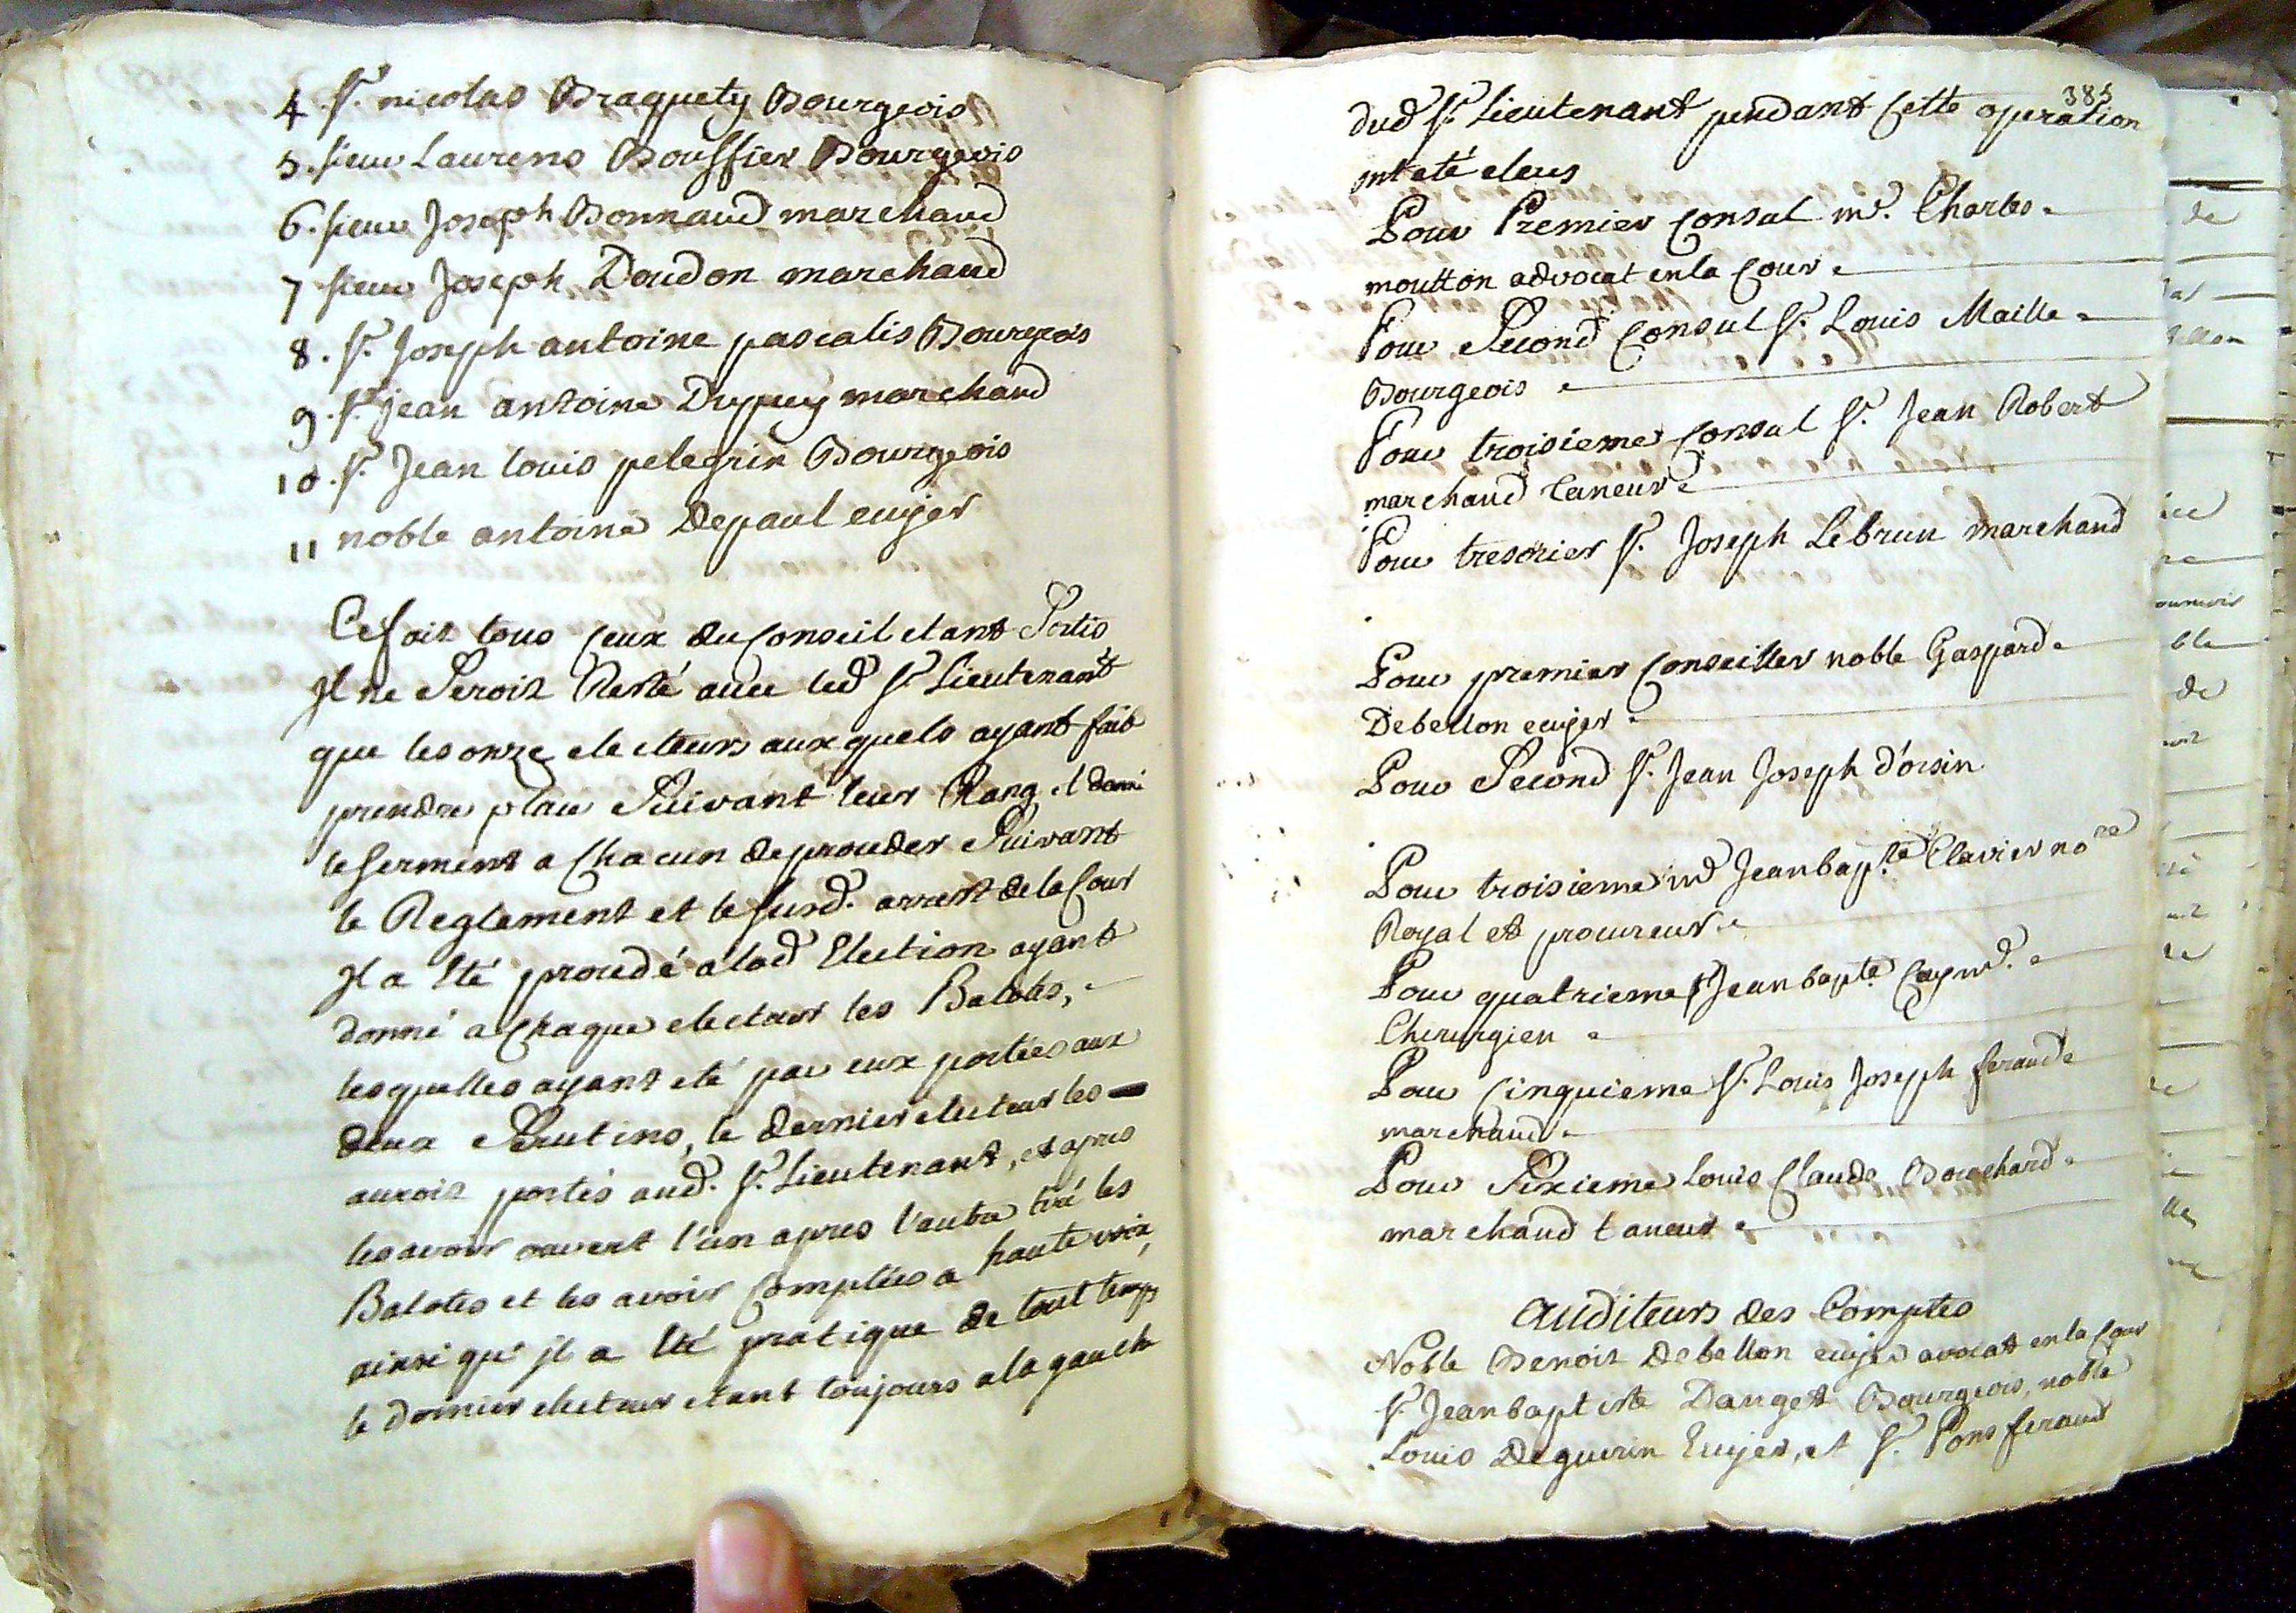 4. Sr. nicolas Braquety Bourgeois
5. sieur Laurens Bouffier Bourgeois
6. sieur Joseph Bonnaud marchand
7 sieur Joseph Doudon marchand
8. Sr. Joseph antoine pascalis Bourgeois
9. Sr. jean antoine Dupuy marchand
10. Sr. Jean louis pelegrin Bourgeois
11 noble antoine Depaul ecuyer
Ce fait tous ceux du Conseil etant Sortis
Jl ne Seroit Resté avec led Sr. Lieutenant
que les onze electeurs aux quels ayant fait
prendre place Suivant leur Rang et donné
le serment a Chacun de proceder Suivant
le Reglement et le susd. arrest de la Cour
Jl a Eté procedé a lad Election ayant
donné a Chaque electeur les Balotes,
lesquelles ayant eté par eux portées aux
deux Scrutins, le dernier electeur les
auroit portés aud. Sr. Lieutenant, et apres
les avoir ouvert l'un apres l'autre tiré les
Balotes et les avoir Comptées a haute voix,
ainsi qu'jl a Eté pratique de tout temps
le dernier electeur etant toujours a la gauche
385
dud Sr. Lieutenant pendant Cette operation
ont eté eleus
Pour Premier Consul me. Charles
moutton advocat en la Cour
Pour Second Consul Sr. Louis Maille
Bourgeois
Pour troisieme Consul Sr. Jean Robert
marchand taneur
Pour tresorier Sr. Joseph Lebrun marchand
Pour premier Conseiller noble Gaspard
Debellon ecuyer
Pour Second Sr. Jean Joseph d'oisin
Pour troisieme me Jean bapte. Clavier nore
Royal et procureur
Pour quatrieme Sr Jean bapte. md.
Chirurgien
Pour Cinquieme Sr. Louis Joseph feraud
marchand
Pour Sixieme Louis Claude Bouchard
marchand taneur
Auditeurs des Comptes
Noble Benoit Debellon ecuyer avocat en la Cour
Sr. Jean baptiste Danget Bourgeois, noble
Louis Deguerin Ecuyer, et Sr. Pons feraud